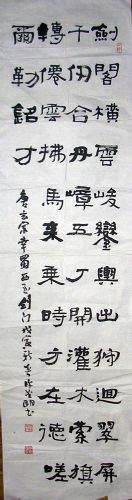 劍閣橫雲峻鑾輿出狩迴翠屏
千仞合丹嶂五丁開灌木縈旗
轉僊雲拂馬來乘時方在德嗟
爾勒銘才
唐玄宗幸蜀西至劍門戊寅